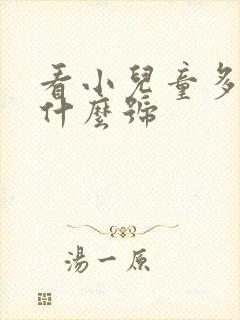 看小兒童多
什麼號
湯一原